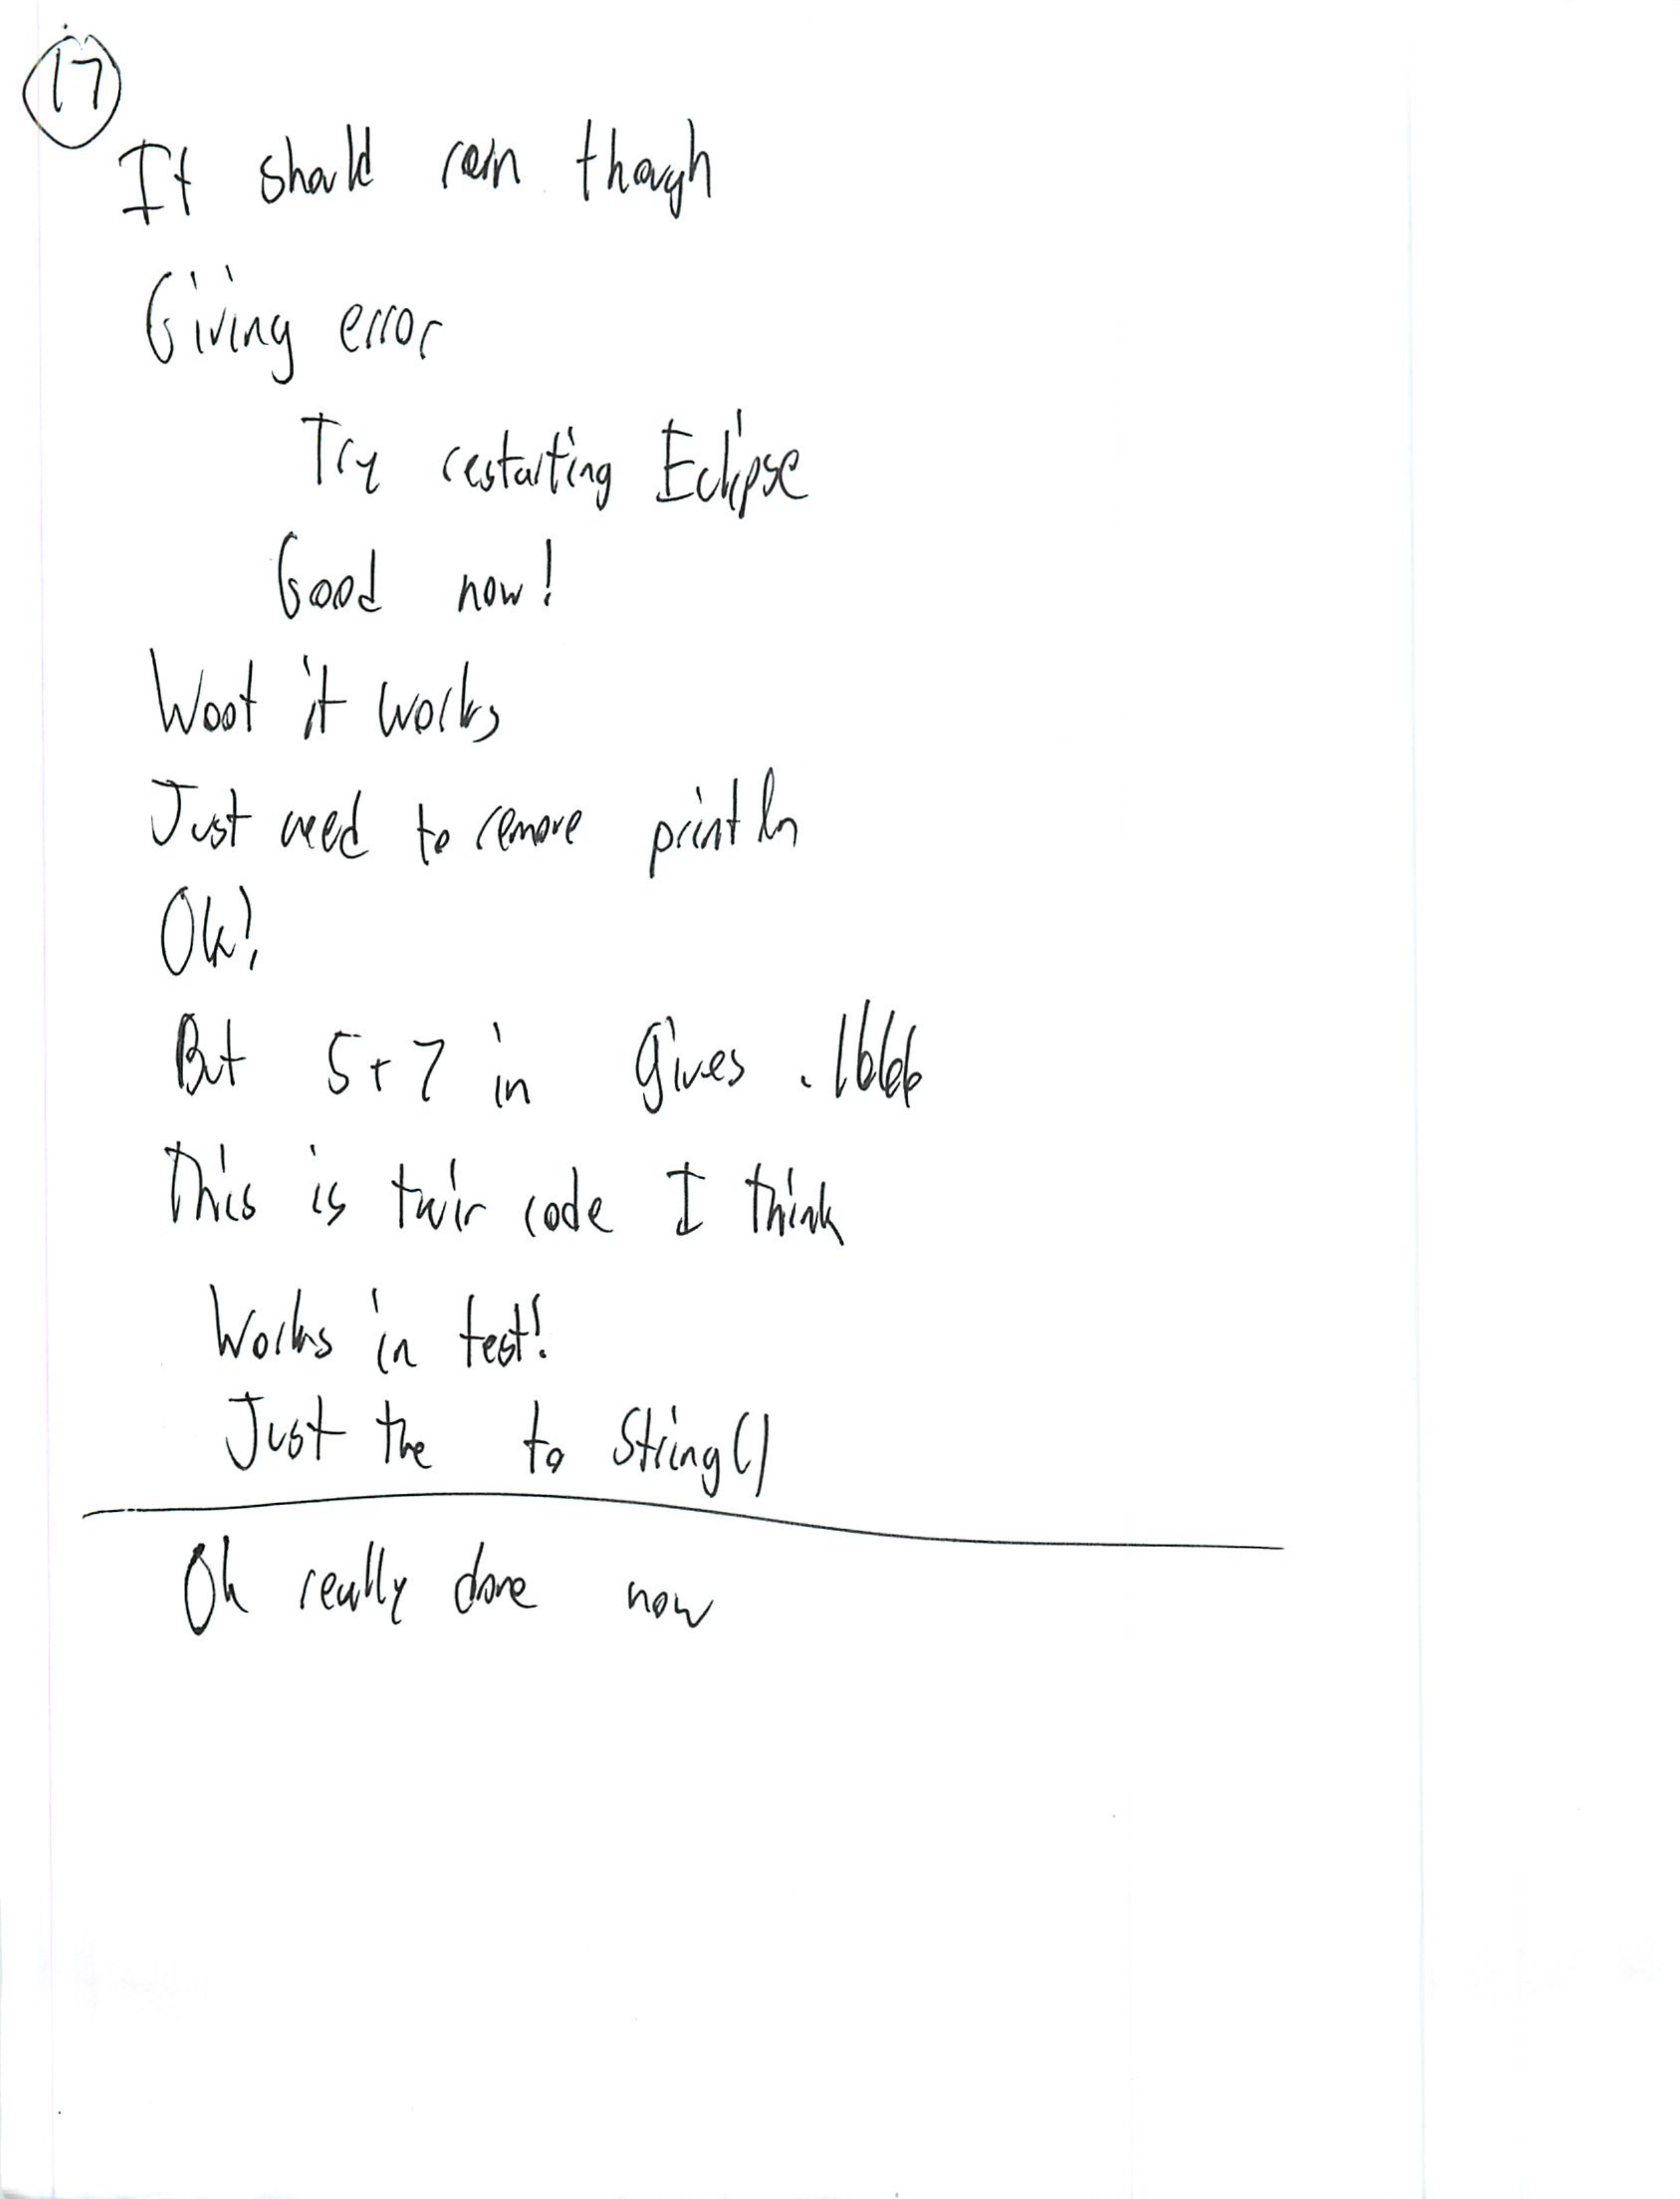 17
It should run though
Giving error
Try restarting Eclipse
Good now!
Woot it works
Just need to remove println
Ok!
But 5+7 in gives .1666
This is twir code I think
Works in test!
Just the to String()
Ok really done now